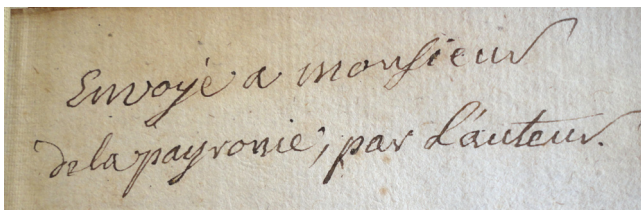 Envoyé a monsieur
de la payronie, par L'auteur.